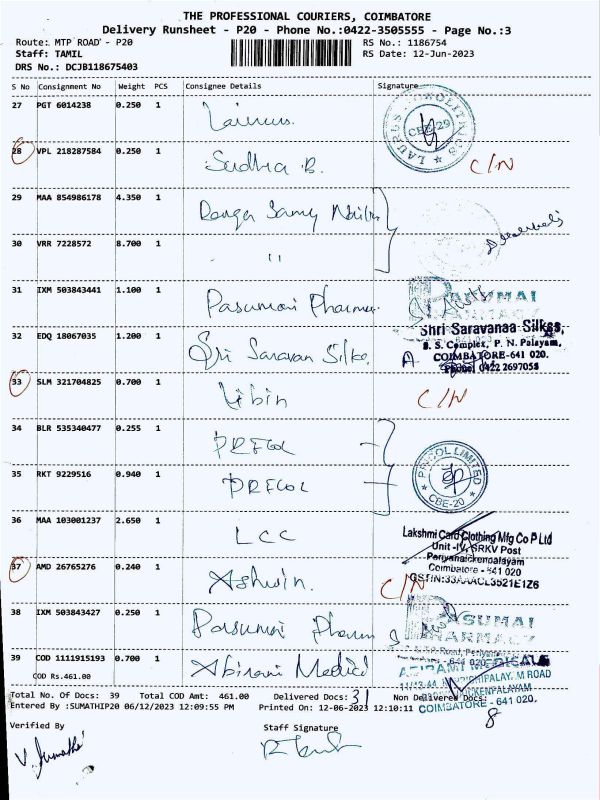 THE PROFESSIONAL COURIERS, COIMBATORE
Delivery Runsheet - P20 - Phone No.:0422-3505555 - Page No.:3
Route: MTP ROAD - P20
RS No.: 1186754
Staff: TAMIL
RS Date: 12-Jun-2023
DRS No.: DCJB118675403
S No Consignment No Weight PCS Consignee Details Signature
27 PGT 6014238 0.250 1
LAURUS CBE-29
28 VPL 218287584 0.250 1 Sudha B. C/N
29 MAA 854986178 4.350 1
30 VRR 7228572 8.700 1 "
31 IXM 503843441 1.100 1 Pasumai Pharma
Shri Saravanaa Silkss,
S. S. Complex, P. N. Palayam,
COIMBATORE-641 020.
Phone: 0422 2697058
32 EDQ 18067035 1.200 1 Sri Saravan Silks.
33 SLM 321704825 0.700 1 Libin C/N
34 BLR 535340477 0.255 1 PRICOL
PRICOL LIMITED CBE-20
35 RKT 9229516 0.940 1 PRICOL
36 MAA 103001237 2.650 1 LCC
Lakshmi Card Clothing Mfg Co P Ltd
Unit -IV, SRKV Post
Periyanaickenpalayam
Coimbatore - 641 020
GSTIN:33AAACL3521E1Z6
37 AMD 26765276 0.240 1 Ashwin. C/N
38 IXM 503843427 0.250 1 Pasumai Pharm
PASUMAI
PHARMACY
39 COD 1111915193 0.700 1 Abirami Medical
COD Rs.461.00
ABIRAMI MEDICALS
COIMBATORE - 641 020.
Total No. Of Docs: 39 Total COD Amt: 461.00 Delivered Docs: 31 Non Delivered Docs: 8
Entered By :SUMATHIP20 06/12/2023 12:09:55 PM Printed On: 12-06-2023 12:10:11
Verified By Staff Signature
V. Sumathi